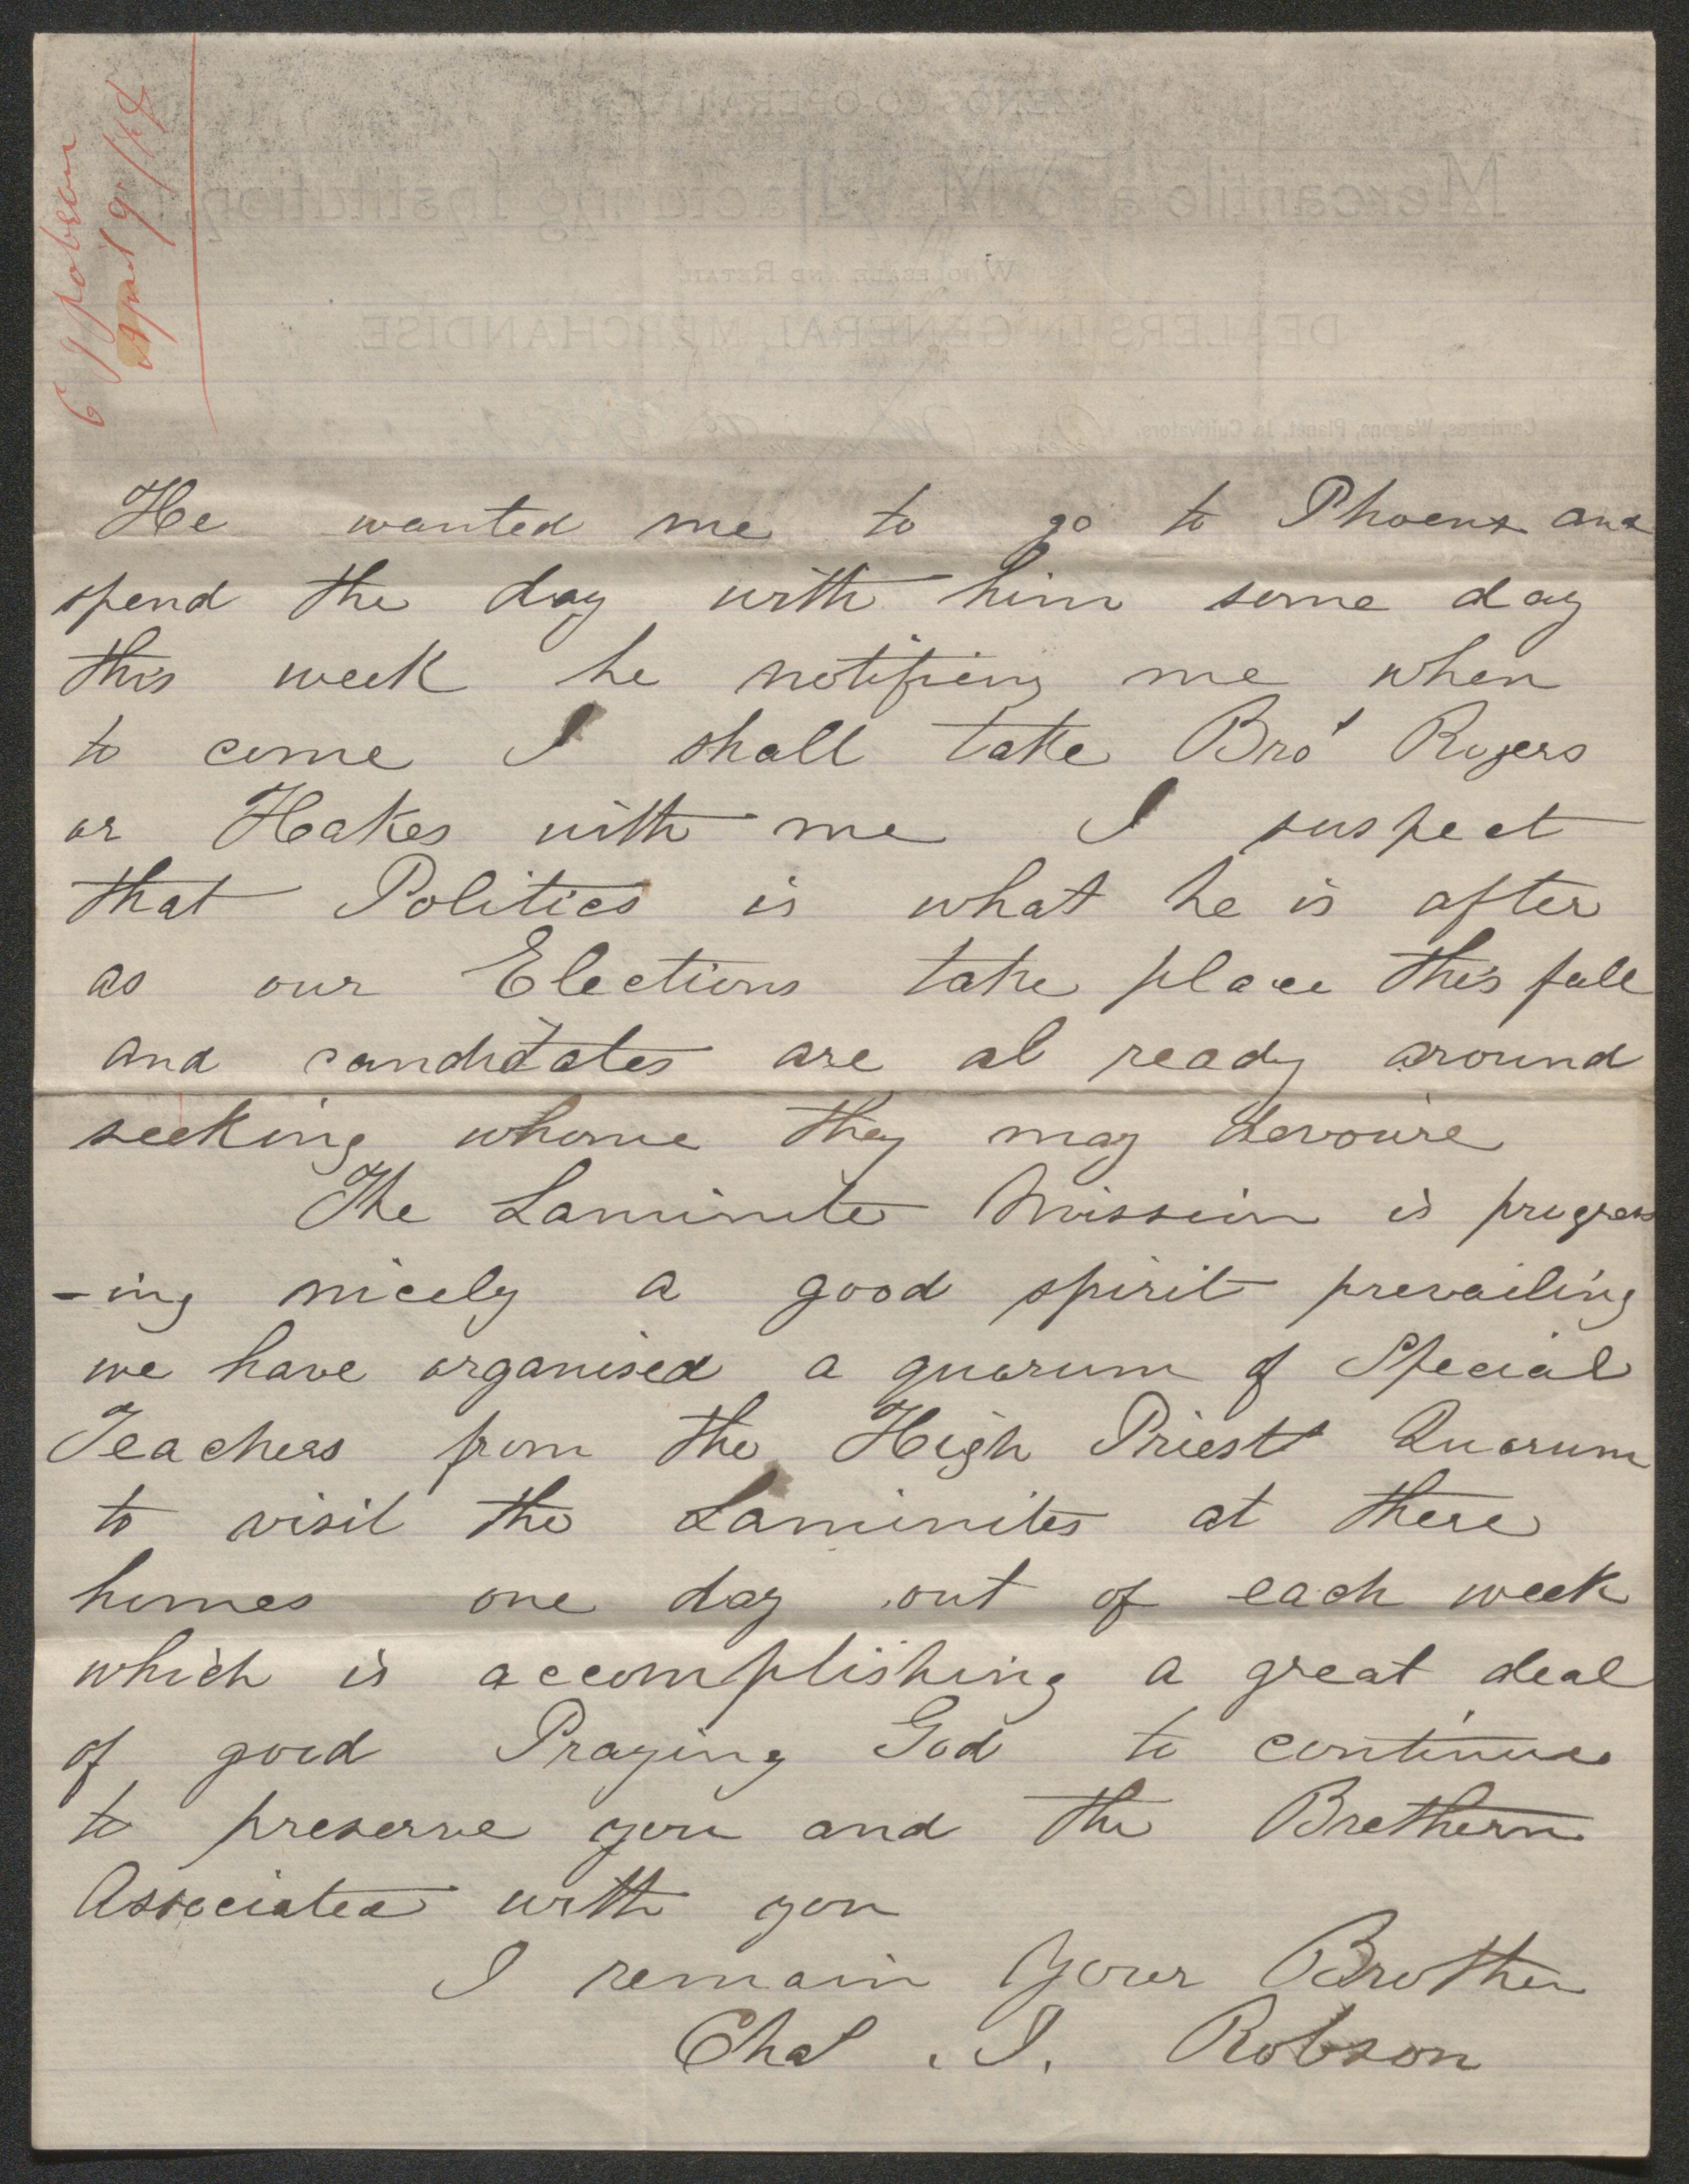 C J Robson
April 9/94
He wanted me to go to Phoenx and
spend the day with him some day
this week he notifieng me when
to come I shall take Bro' Rogers
or Hakes with me I suspect
that Politics is what he is after
as our Elections take place this fall
and candidates are al ready around
seeking whome they may devoure
The Laminite Mission is progress
-ing nicely a good spirit prevailing
we have organised a quorum of Special
Teachers from the High Priest Quorum
to visit the Laminites at there
homes one day out of each week
which is accomplishing a great deal
of good Praying God to continue
to preserve you and the Brethern
Associated with you
I remain Your Brother
Chas . I. Robson
ZENOS CO-OPERATIVE
Mercantile and Manufacturing Institution,
WHOLESALE AND RETAIL
DEALERS IN GENERAL MERCHANDISE.
Carriages, Wagons, Planet, Jr. Cultivators,